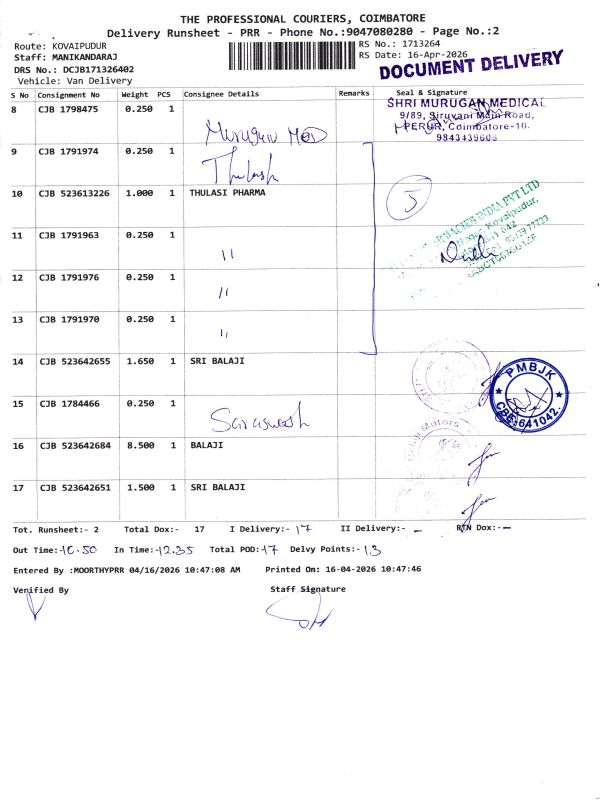 THE PROFESSIONAL COURIERS, COIMBATORE
Delivery Runsheet - PRR - Phone No.:9047080280 - Page No.:2
Route: KOVAIPUDUR
RS No.: 1713264
Staff: MANIKANDARAJ
RS Date: 16-Apr-2026
DRS No.: DCJB171326402
DOCUMENT DELIVERY
Vehicle: Van Delivery
S No Consignment No Weight PCS Consignee Details Remarks Seal & Signature
8 CJB 1798475 0.250 1 Murugan Med
SHRI MURUGAN MEDICAL
9/89, Siruvani Main Road,
PERUR, Coimbatore-10.
9843439606
9 CJB 1791974 0.250 1 Thulash
10 CJB 523613226 1.000 1 THULASI PHARMA
5
INDIA PVT LTD
Kovaipudur,
11 CJB 1791963 0.250 1 "
12 CJB 1791976 0.250 1 "
13 CJB 1791970 0.250 1 "
14 CJB 523642655 1.650 1 SRI BALAJI
PMBJK
CBE-641042.
15 CJB 1784466 0.250 1
16 CJB 523642684 8.500 1 BALAJI
Motors
17 CJB 523642651 1.500 1 SRI BALAJI
Tot. Runsheet:- 2 Total Dox:- 17 I Delivery:- 17 II Delivery:- - RTN Dox:- -
Out Time:-10.50 In Time:-12.35 Total POD:-17 Delvy Points:- 13
Entered By :MOORTHYPRR 04/16/2026 10:47:08 AM Printed On: 16-04-2026 10:47:46
Verified By Staff Signature